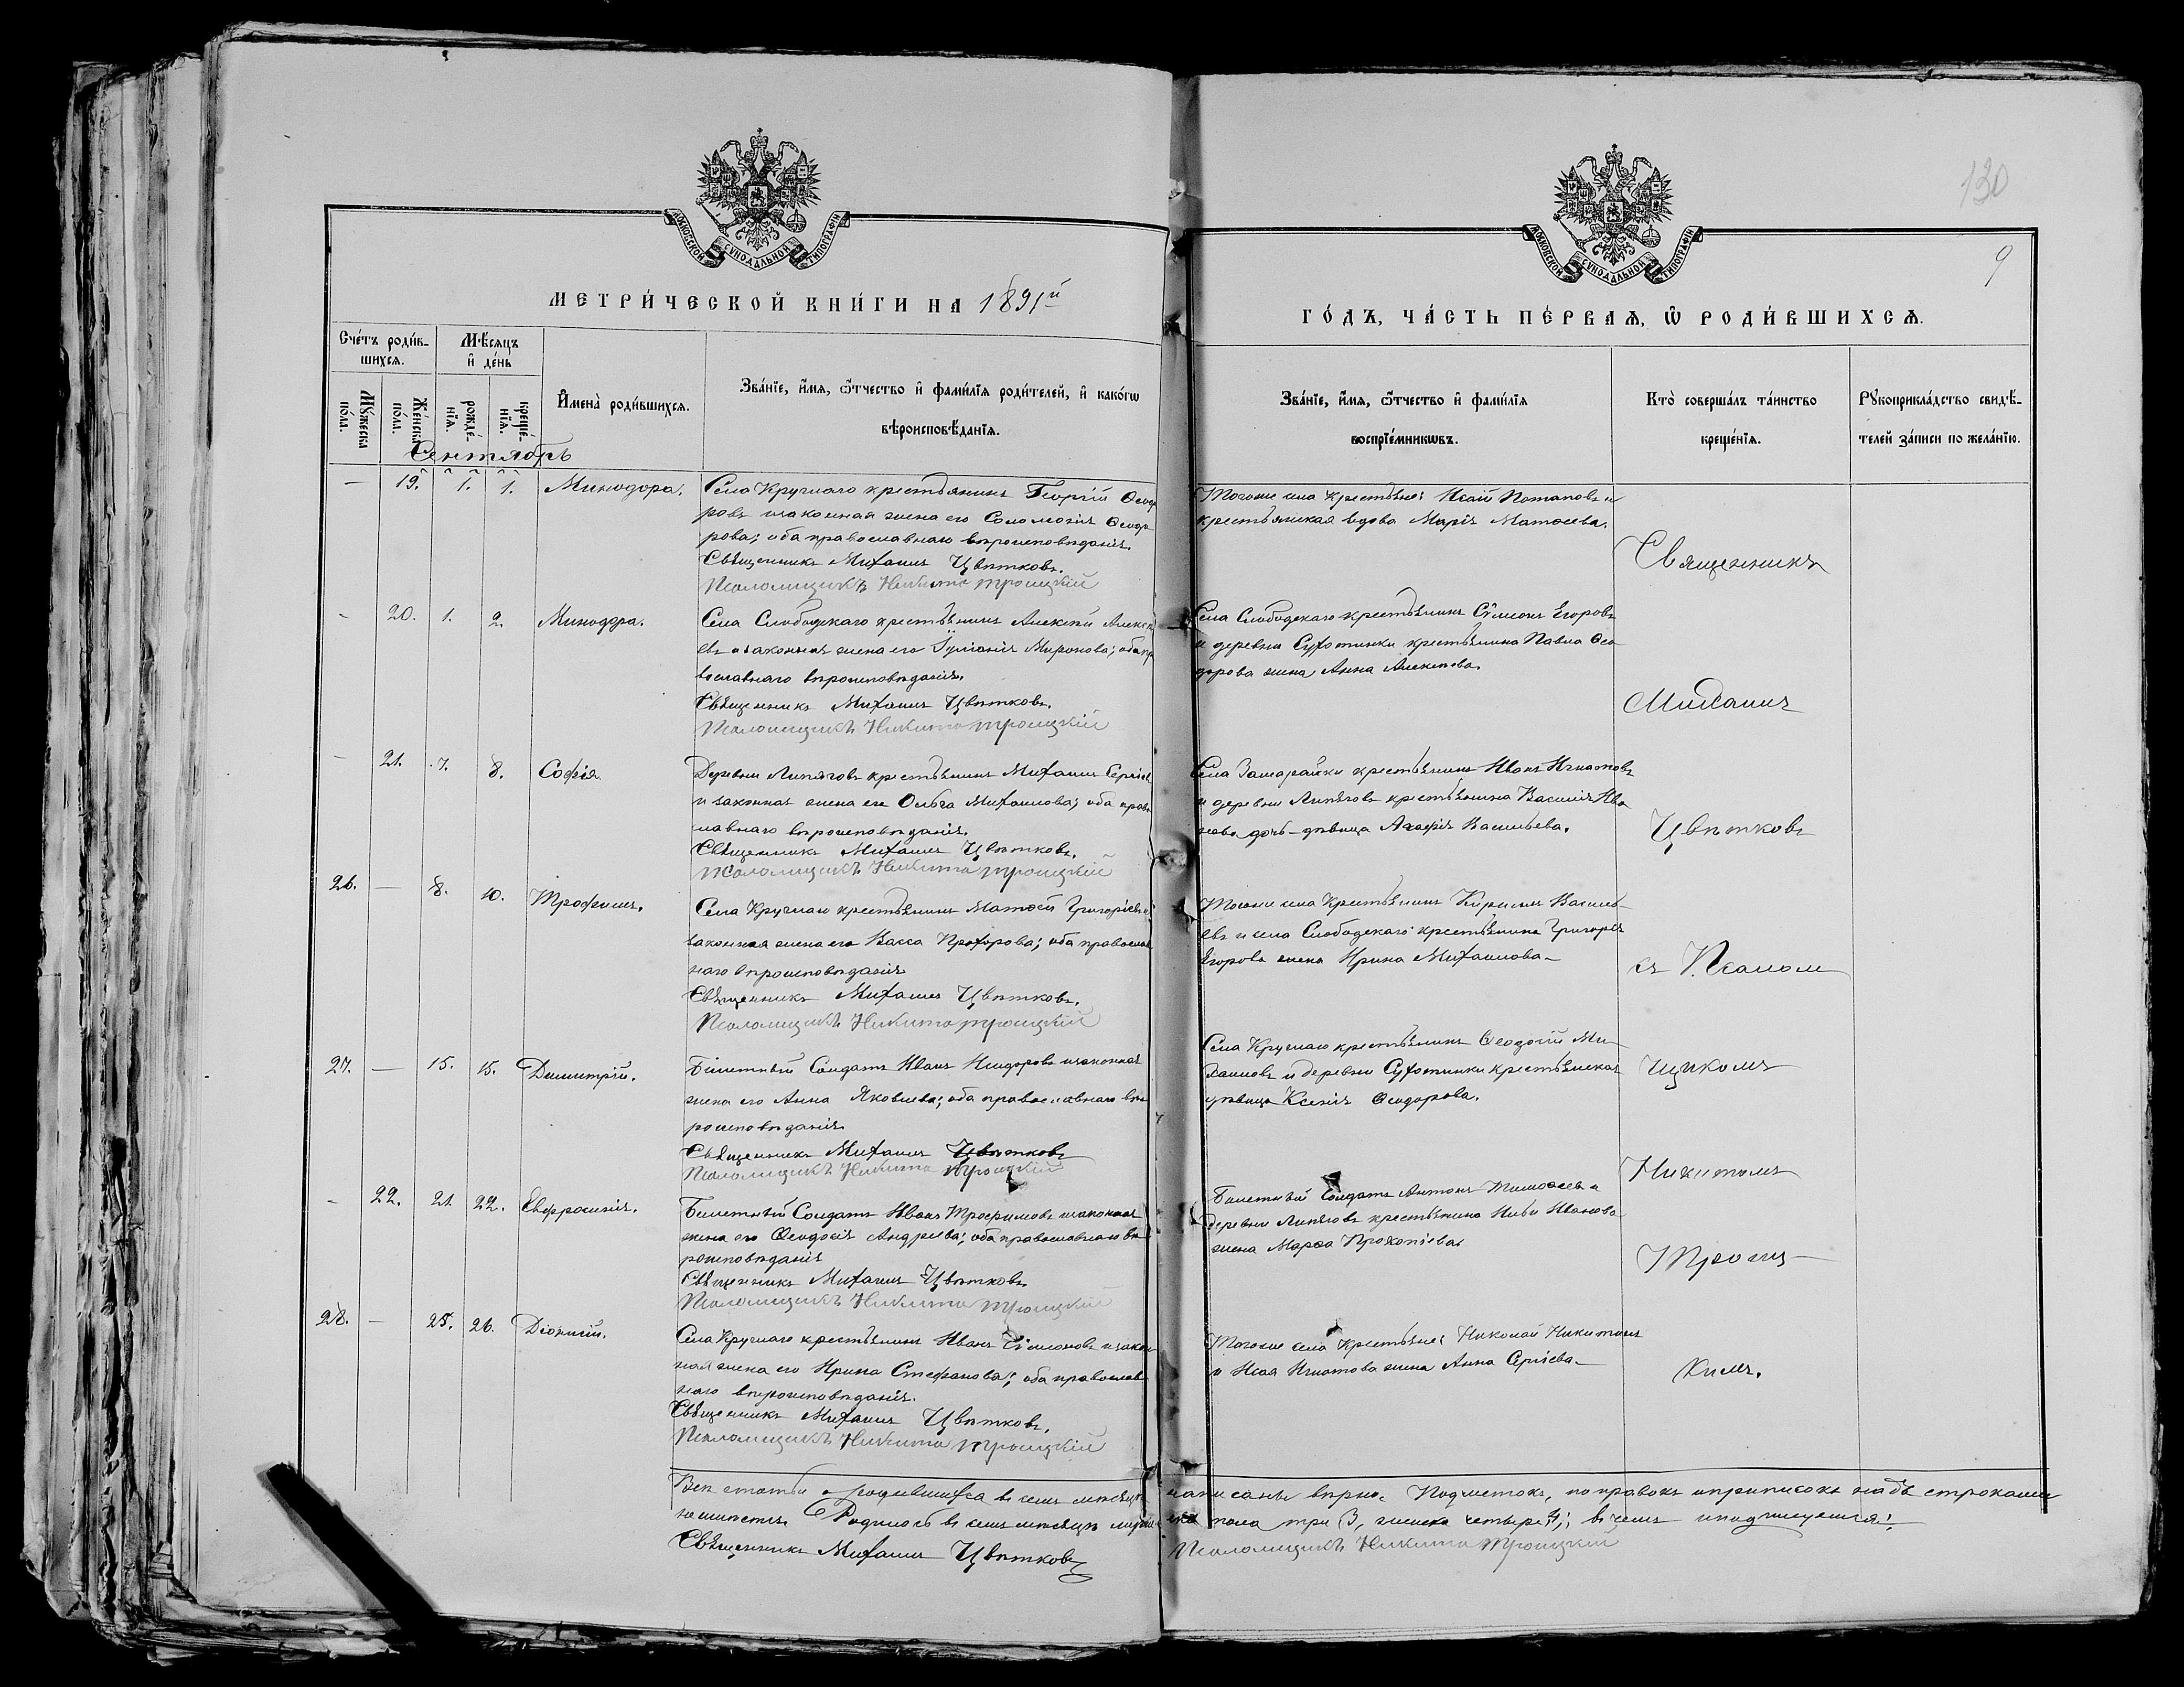 130
9
МОСКОВСКОЙ СѴНОДАЛЬНОЙ ТИПОГРАФІИ
МОСКОВСКОЙ СѴНОДАЛЬНОЙ ТИПОГРАФІИ
МЕТРИ́ЧЕСКОЙ КНИ́ГИ НА 1891й
ГО́ДЪ, ЧА́СТЬ ПЕ́РВАѦ, Ѡ҆ РОДИ́ВШИХСѦ.
Сче́тъ роди́в-
шихсѧ.
Мꙋ́жеска
по́ла.
Же́нска
по́ла.
Мѣ́сѧцъ
и҆ де́нь
рожде́-
нїѧ.
креще́-
нїѧ.
И҆мена̀ роди́вшихсѧ.
Зва́нїе, и҆́мѧ, ѻ҆́тчество и҆ фами́лїѧ роди́телей, и҆ како́гѡ
вѣроисповѣ́данїѧ.
Зва́нїе, и҆́мѧ, ѻ҆́тчество и҆ фами́лїѧ
воспрїе́мникѡвъ.
Кто̀ соверша́лъ та́инство
креще́нїѧ.
Рꙋкоприкла́дство свидѣ́-
телей за́писи по жела́нїю.
Сентябрь
— 19. 1. 1. Минодора.
Села Круглаго крестьянинъ Георгій Ѳеодо
ровъ и законная жена его Соломонія Ѳеодо
рова; оба православнаго вѣроисповѣданія.
Священникъ Михаилъ Цвѣтковъ.
Псаломщикъ Никита Троицкій
Тогоже села крестьяне: Исай Потаповъ и
крестьянская вдова Марія Матѳеева.
- 20. 1. 2. Минодора.
Села Слободскаго крестьянинъ Алексѣй Алексѣ
евъ и законная жена его Іуліанія Миронова; оба пра
вославнаго вѣроисповѣданія.
Священникъ Михаилъ Цвѣтковъ.
Псаломщикъ Никита Троицкій
Села Слободскаго крестьянинъ Сѵмеонъ Егоровъ
и деревни Сухотинки крестьянина Павла Ѳео
дорова жена Анна Алексѣева.
— 21. 7. 8. Софія
Деревни Липяговъ крестьянинъ Михаилъ Сергѣев
и законная жена его Ольга Михаилова; оба право
лавнаго вѣроисповѣданія.
Священникъ Михаилъ Цвѣтковъ.
Псаломщикъ Никита Троицкій
Села Замарайки крестьянинъ Иванъ Игнатовъ
и деревни Липяговъ крестьянина Василія Ива
нова дочь-дѣвица Агафія Васильева.
26. — 8. 10. Трофимъ.
Села Круглаго крестьянинъ Матѳей Григорьевъ и
законная жена его Васса Прохорова; оба православ
наго вѣроисповѣданія
Священникъ Михаилъ Цвѣтковъ.
Псаломщикъ Никита Троицкій
Тогоже села Крестьянинъ Кириллъ Василь-
евъ и села Слободскаго крестьянина Григорія
Егорова жена Ирина Михаилова-
27. — 15. 15. Димитрій.
Билетный Солдатъ Иванъ Исидоровъ и законная
жена его Анна Яковлева; оба православнаго вѣ
роисповѣданія
Священникъ Михаилъ Цвѣтковъ
Псаломщикъ Никита Троицкій
Села Круглаго крестьянинъ Ѳеодосій Ми-
хаиловъ и деревни Сухотинки крестьянская
дѣвица Ксенія Ѳеодорова.
- 22. 21. 22. Евфросинія.
Билетный Солдатъ Иванъ Трофимовъ и законная
жена его Ѳеодосія Андреева; оба православнаго вѣ
роисповѣданія
Священникъ Михаилъ Цвѣтковъ
Псаломщикъ Никита Троицкій
Билетный Солдатъ Антонъ Тимоѳеевъ и
деревни Липяговъ крестьянина Иванова
жена Марѳа Прокопіева.
28. — 25. 26. Діонисій.
Села Круглаго крестьянинъ Иванъ Сѵмеоновъ и закон
ная жена его Ирина Стефанова; оба православ
наго вѣроисповѣданія.
Священникъ Михаилъ Цвѣтковъ.
Псаломщикъ Никита Троицкій
Тогоже села Крестьяне: Николай Никитинъ
и Исая Игнатова жена Анна Сергіева-
Священникъ
Михаилъ
Цвѣтковъ
съ Псалом
щикомъ
Никитою
Троиц-
кимъ.
Всѣ статьи о родившихся въ семъ мѣсяцѣ написаны вѣрно. Подчистокъ, поправокъ и приписокъ надъ строками
не имѣется. Родилось въ семъ мѣсяцѣ мужеска пола три 3, женска четыре 4; въ чемъ и подписуемся:
Священникъ Михаилъ Цвѣтковъ Псаломщикъ Никита Троицкій